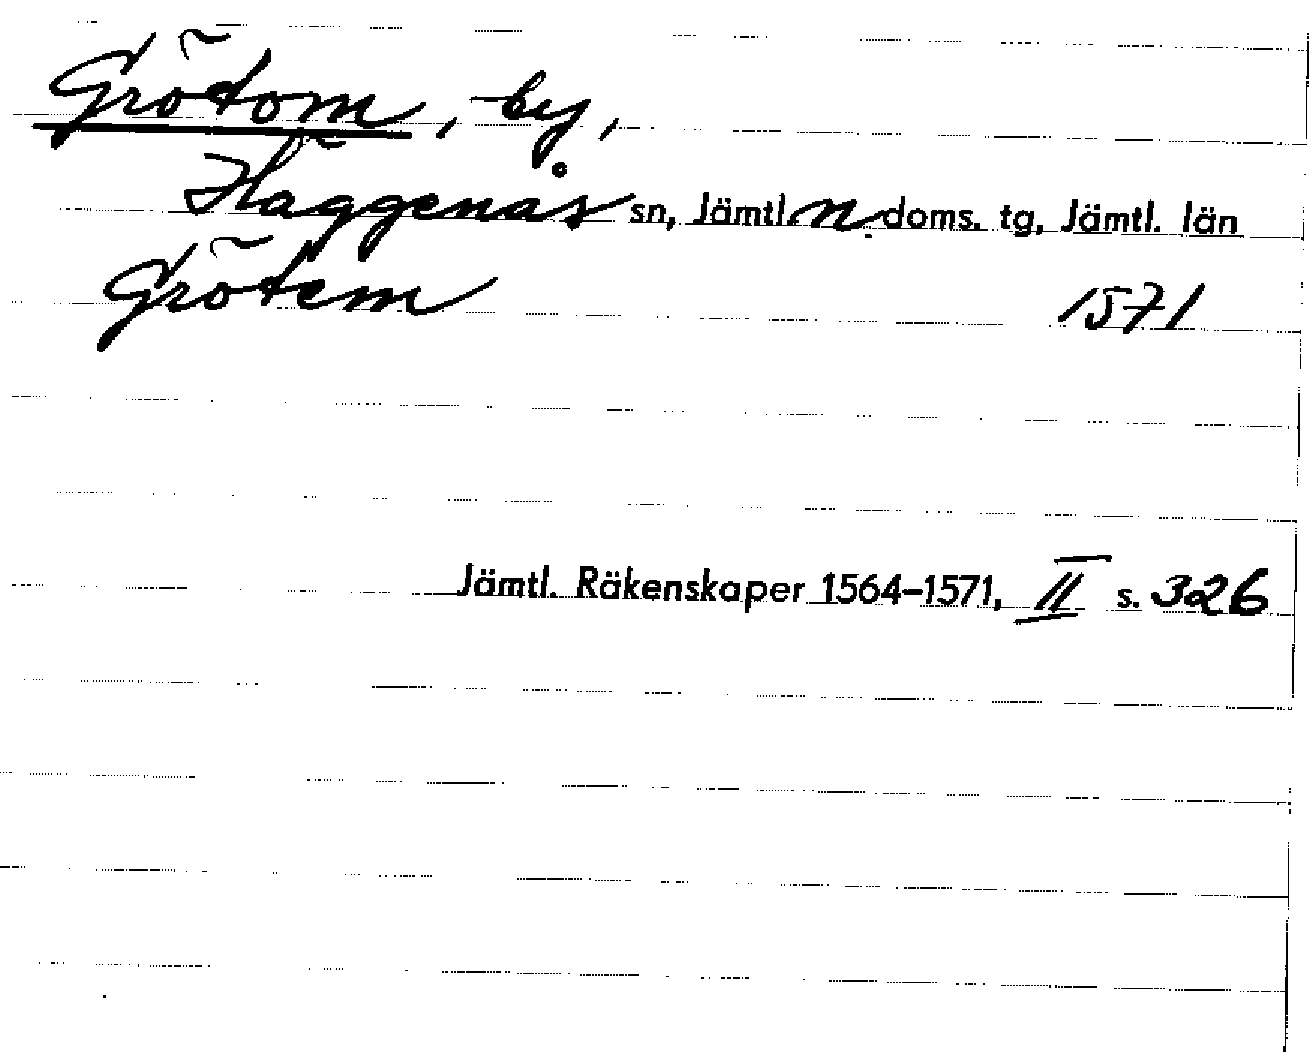 Grötom, by,
Häggenås sn, Jämtl. n. doms. tg, Jämtl. län
Grötem 1571
Jämtl. Räkenskaper 1564–1571, II s. 326